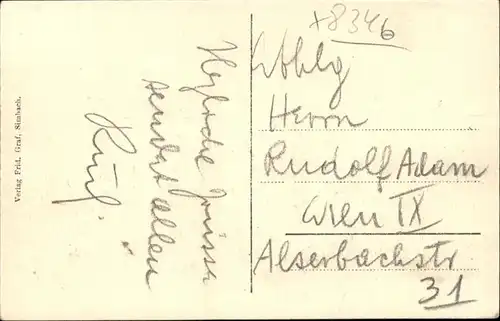 Verlag Frid. Graf, Simbach.
Herzliche Grüsse
sendet allen
+8346
Herrn
Rudolf Adam
Wien IX
Alserbachstr
31